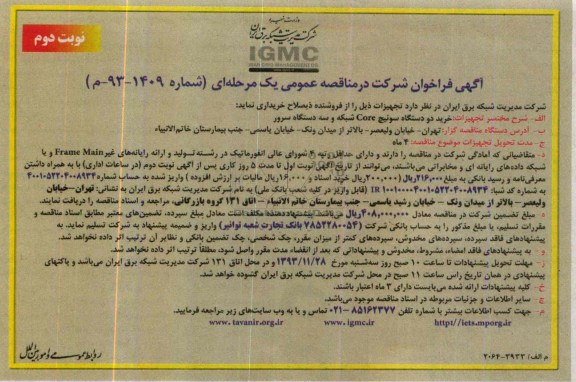 وزارت نیرو
شرکت مدیریت شبکه برق ایران
نوبت دوم
IGMC
IRAN GRID MANAGEMENT CO
آگهی فراخوان شرکت در مناقصه عمومی یک مرحله‌ای (شماره ۱۴۰۹-۹۳-م)
شرکت مدیریت شبکه برق ایران در نظر دارد تجهیزات ذیل را از فروشنده ذیصلاح خریداری نماید:
الف- شرح مختصر تجهیزات: خرید دو دستگاه سوئیچ Core شبکه و سه دستگاه سرور
ب- آدرس دستگاه مناقصه گزار: تهران- خیابان ولیعصر- بالاتر از میدان ونک- خیابان یاسمی- جنب بیمارستان خاتم‌الانبیاء
ج- مدت تحویل تجهیزات موضوع مناقصه: ۴ ماه
د- متقاضیانی که آمادگی شرکت در مناقصه را دارند و دارای حداقل رتبه ۴ شورای عالی انفورماتیک در رشته تولید و ارائه رایانه‌های غیر Main Frame و یا
شبکه داده‌های رایانه ای و مخابراتی می‌باشند، می‌توانند از تاریخ آگهی نوبت اول تا مدت ۵ روز کاری پس از آگهی نوبت دوم (در ساعات اداری) با به همراه داشتن
معرفی‌نامه و رسید بانکی به مبلغ ۲۱۶,۰۰۰ ریال (۲۰۰,۰۰۰ ریال خرید اسناد و ۱۶,۰۰۰ ریال مالیات بر ارزش افزوده) واریز شده به حساب شماره ۴۰۰۱۰۵۲۲۰۴۰۰۸۹۳۴
به شماره کد شبا: IR ۱۰۰۱۰۰۰۰۴۰۰۱۰۵۲۲۰۴۰۰۸۹۳۴ (قابل واریز در کلیه شعب بانک ملی) به نام شرکت مدیریت شبکه برق ایران به نشانی: تهران- خیابان
ولیعصر- بالاتر از میدان ونک- خیابان رشید یاسمی- جنب بیمارستان خاتم الانبیاء- اتاق ۱۳۱ گروه بازرگانی، مراجعه و اسناد مناقصه را دریافت نمایند.
ه- مبلغ تضمین شرکت در مناقصه معادل ۴۰۸,۰۰۰,۰۰۰ ریال می‌باشد. پیشنهاد دهنده مکلف است معادل مبلغ سپرده، تضمین‌های معتبر مطابق اسناد مناقصه و
مقررات تسلیم، یا مبلغ مذکور را به حساب بانکی شرکت (۷۸۵۳۲۸۰۰۵۴ بانک تجارت شعبه توانیر) واریز و ضمیمه پیشنهاد به شرکت تسلیم نماید. به
پیشنهادهای فاقد سپرده، سپرده‌های مخدوش، سپرده‌های کمتر از میزان مقرر، چک شخصی، چک تضمین بانکی و نظایر آن ترتیب اثر داده نخواهد شد.
و- به پیشنهادهای فاقد امضاء، مشروط، مخدوش و پیشنهاداتی که بعد از انقضاء مدت مقرر واصل شود، مطلقاً ترتیب اثر داده نخواهد شد.
ز- مهلت تحویل پیشنهادات تا ساعت ۱۰ صبح روز سه‌شنبه مورخ ۱۳۹۳/۱۱/۲۸ و در محل اتاق ۱۳۱ شرکت مدیریت شبکه برق ایران می‌باشد و پاکتهای
پیشنهادی در همان تاریخ راس ساعت ۱۱ صبح در محل شرکت مدیریت شبکه برق ایران گشوده خواهد شد.
ح- کلیه پیشنهادات ارائه شده می‌بایست دارای ۳ ماه اعتبار باشند.
ط- سایر اطلاعات و جزئیات مربوطه در اسناد مناقصه موجود می‌باشد.
ی- جهت کسب اطلاعات بیشتر با شماره تلفن ۸۵۱۶۲۳۷۷-۰۲۱ تماس و یا به وب سایت‌های زیر مراجعه فرمایید.
www.tavanir.org.ir www.igmc.ir http://iets.mporg.ir
روابط عمومی و امور بین الملل
م الف) ۳۹۳۳-۲۰۶۴